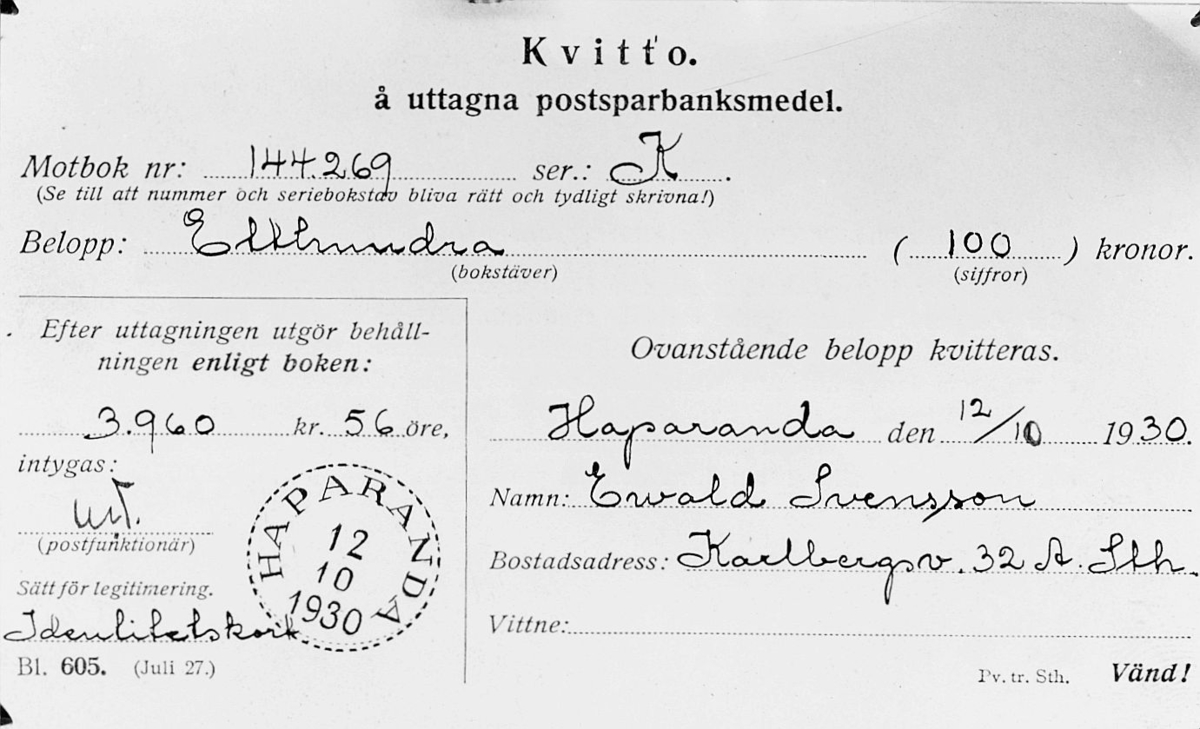 Kvitto.
å uttagna postsparbanksmedel.
Motbok nr: 144.269 ser.: K.
(Se till att nummer och seriebokstav bliva rätt och tydligt skrivna!)
Belopp: Etthundra (100) kronor.
(bokstäver) (siffror)
Efter uttagningen utgör behåll-
ningen enligt boken:
3.960 kr. 56 öre,
intygas:
(postfunktionär)
Sätt för legitimering.
Identitetskort
Bl. 605. (Juli 27.)
HAPARANDA
12
10
1930
Ovanstående belopp kvitteras.
Haparanda den 12/10 1930.
Namn: Ewald Svensson
Bostadsadress: Karlbergsv. 32 A. Sth.
Vittne:
Pv. tr. Sth. Vänd!